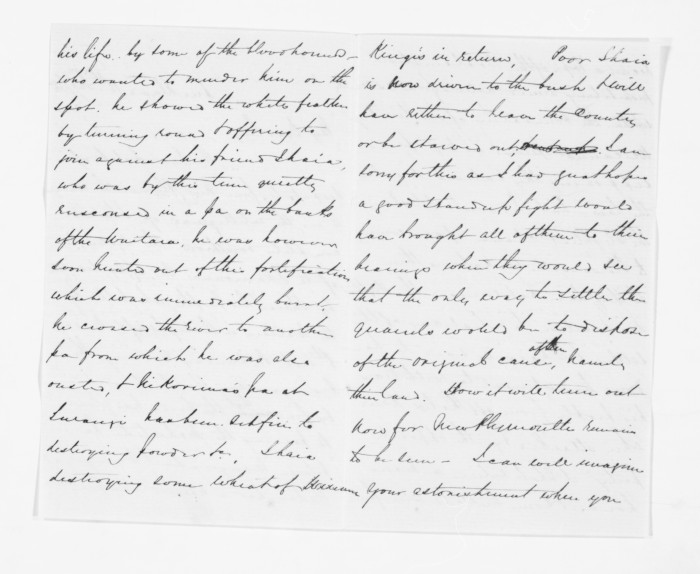 his life by some of the bloodhounds –
who wanted to murder him on the
spot. he showed the white feather
by turning round & offering to
join against his friend Ihaia,
who was by this time
ensconsed in a pa on the banks
of the Waitara, he was however
soon hunted out of this fortification
which was immediately burnt.
he crossed the river to another
pa from which he was also
ousted, & Ki Korima's pa at
has been set fire to
destroying powder &c, Ihaia
destroying some wheat of Wiremu
King's in return, Poor Ihaia
is now driven to the bush & will
have either to leave the Country
or be starved out I am
sorry for this as I had great hopes
a good stand up fight would
have brought all of them to their
bearings when they would see
that the only way to settle their
quarrels would be to dispose
of the original cause, namely
their land. How it will turn out
now for New Plymouth remains
to be seen – I can well imagine
your astonishment when you